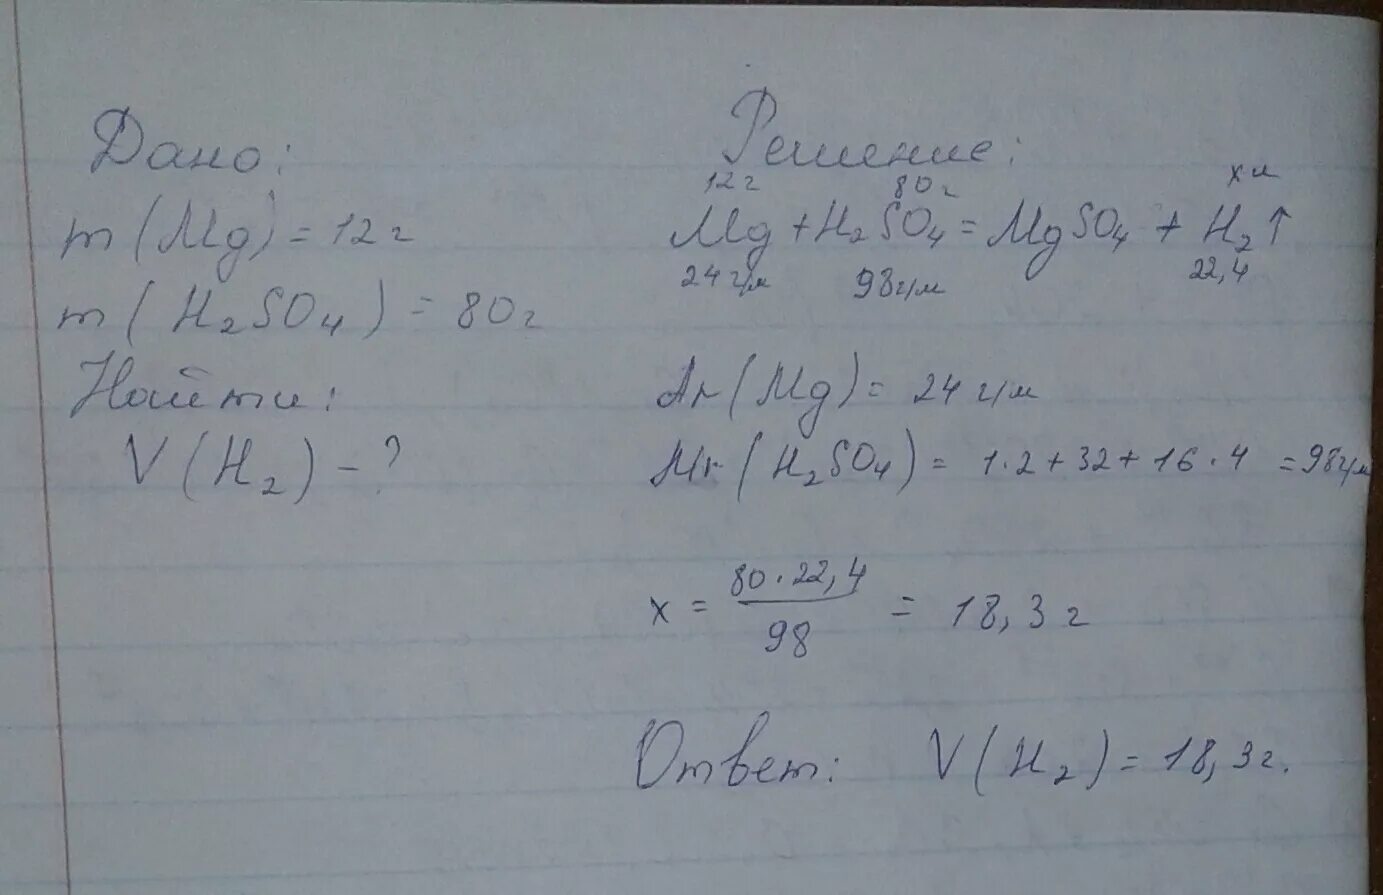 Дано:
m (Mg) = 12 г
m ( H₂SO₄ ) = 80 г
Найти:
V ( H₂ ) – ?
Решение:
12 г 80 г х л
Mg + H₂SO₄ = MgSO₄ + H₂↑
24 г/м 98 г/м 22,4
Ar (Mg) = 24 г/м
Mr ( H₂SO₄ ) = 1·2 + 32 + 16·4 = 98 г/м
x = 80·22,4 / 98 = 18,3 г
Ответ: V ( H₂ ) = 18,3 г.